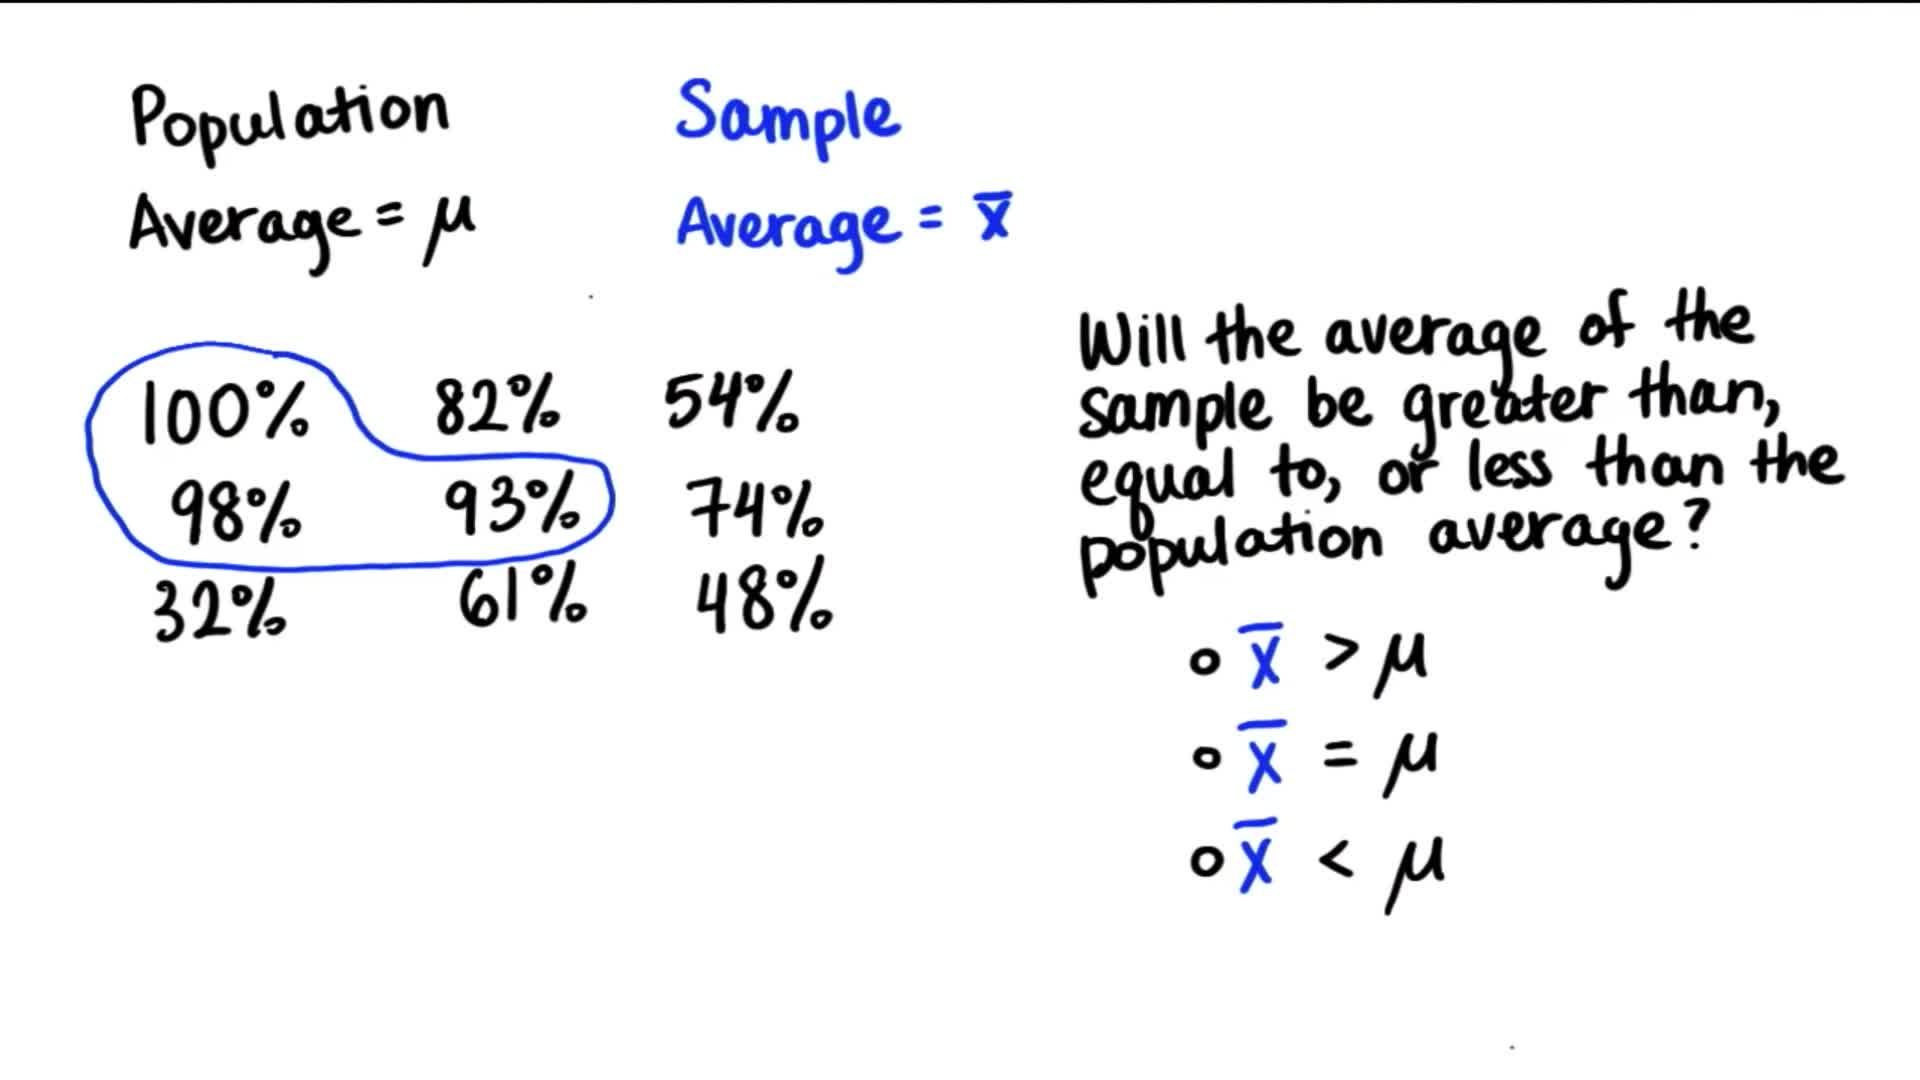 Population
Average = μ
Sample
Average = x̄
100% 82% 54%
98% 93% 74%
32% 61% 48%
Will the average of the
sample be greater than,
equal to, or less than the
population average?
o x̄ > μ
o x̄ = μ
o x̄ < μ